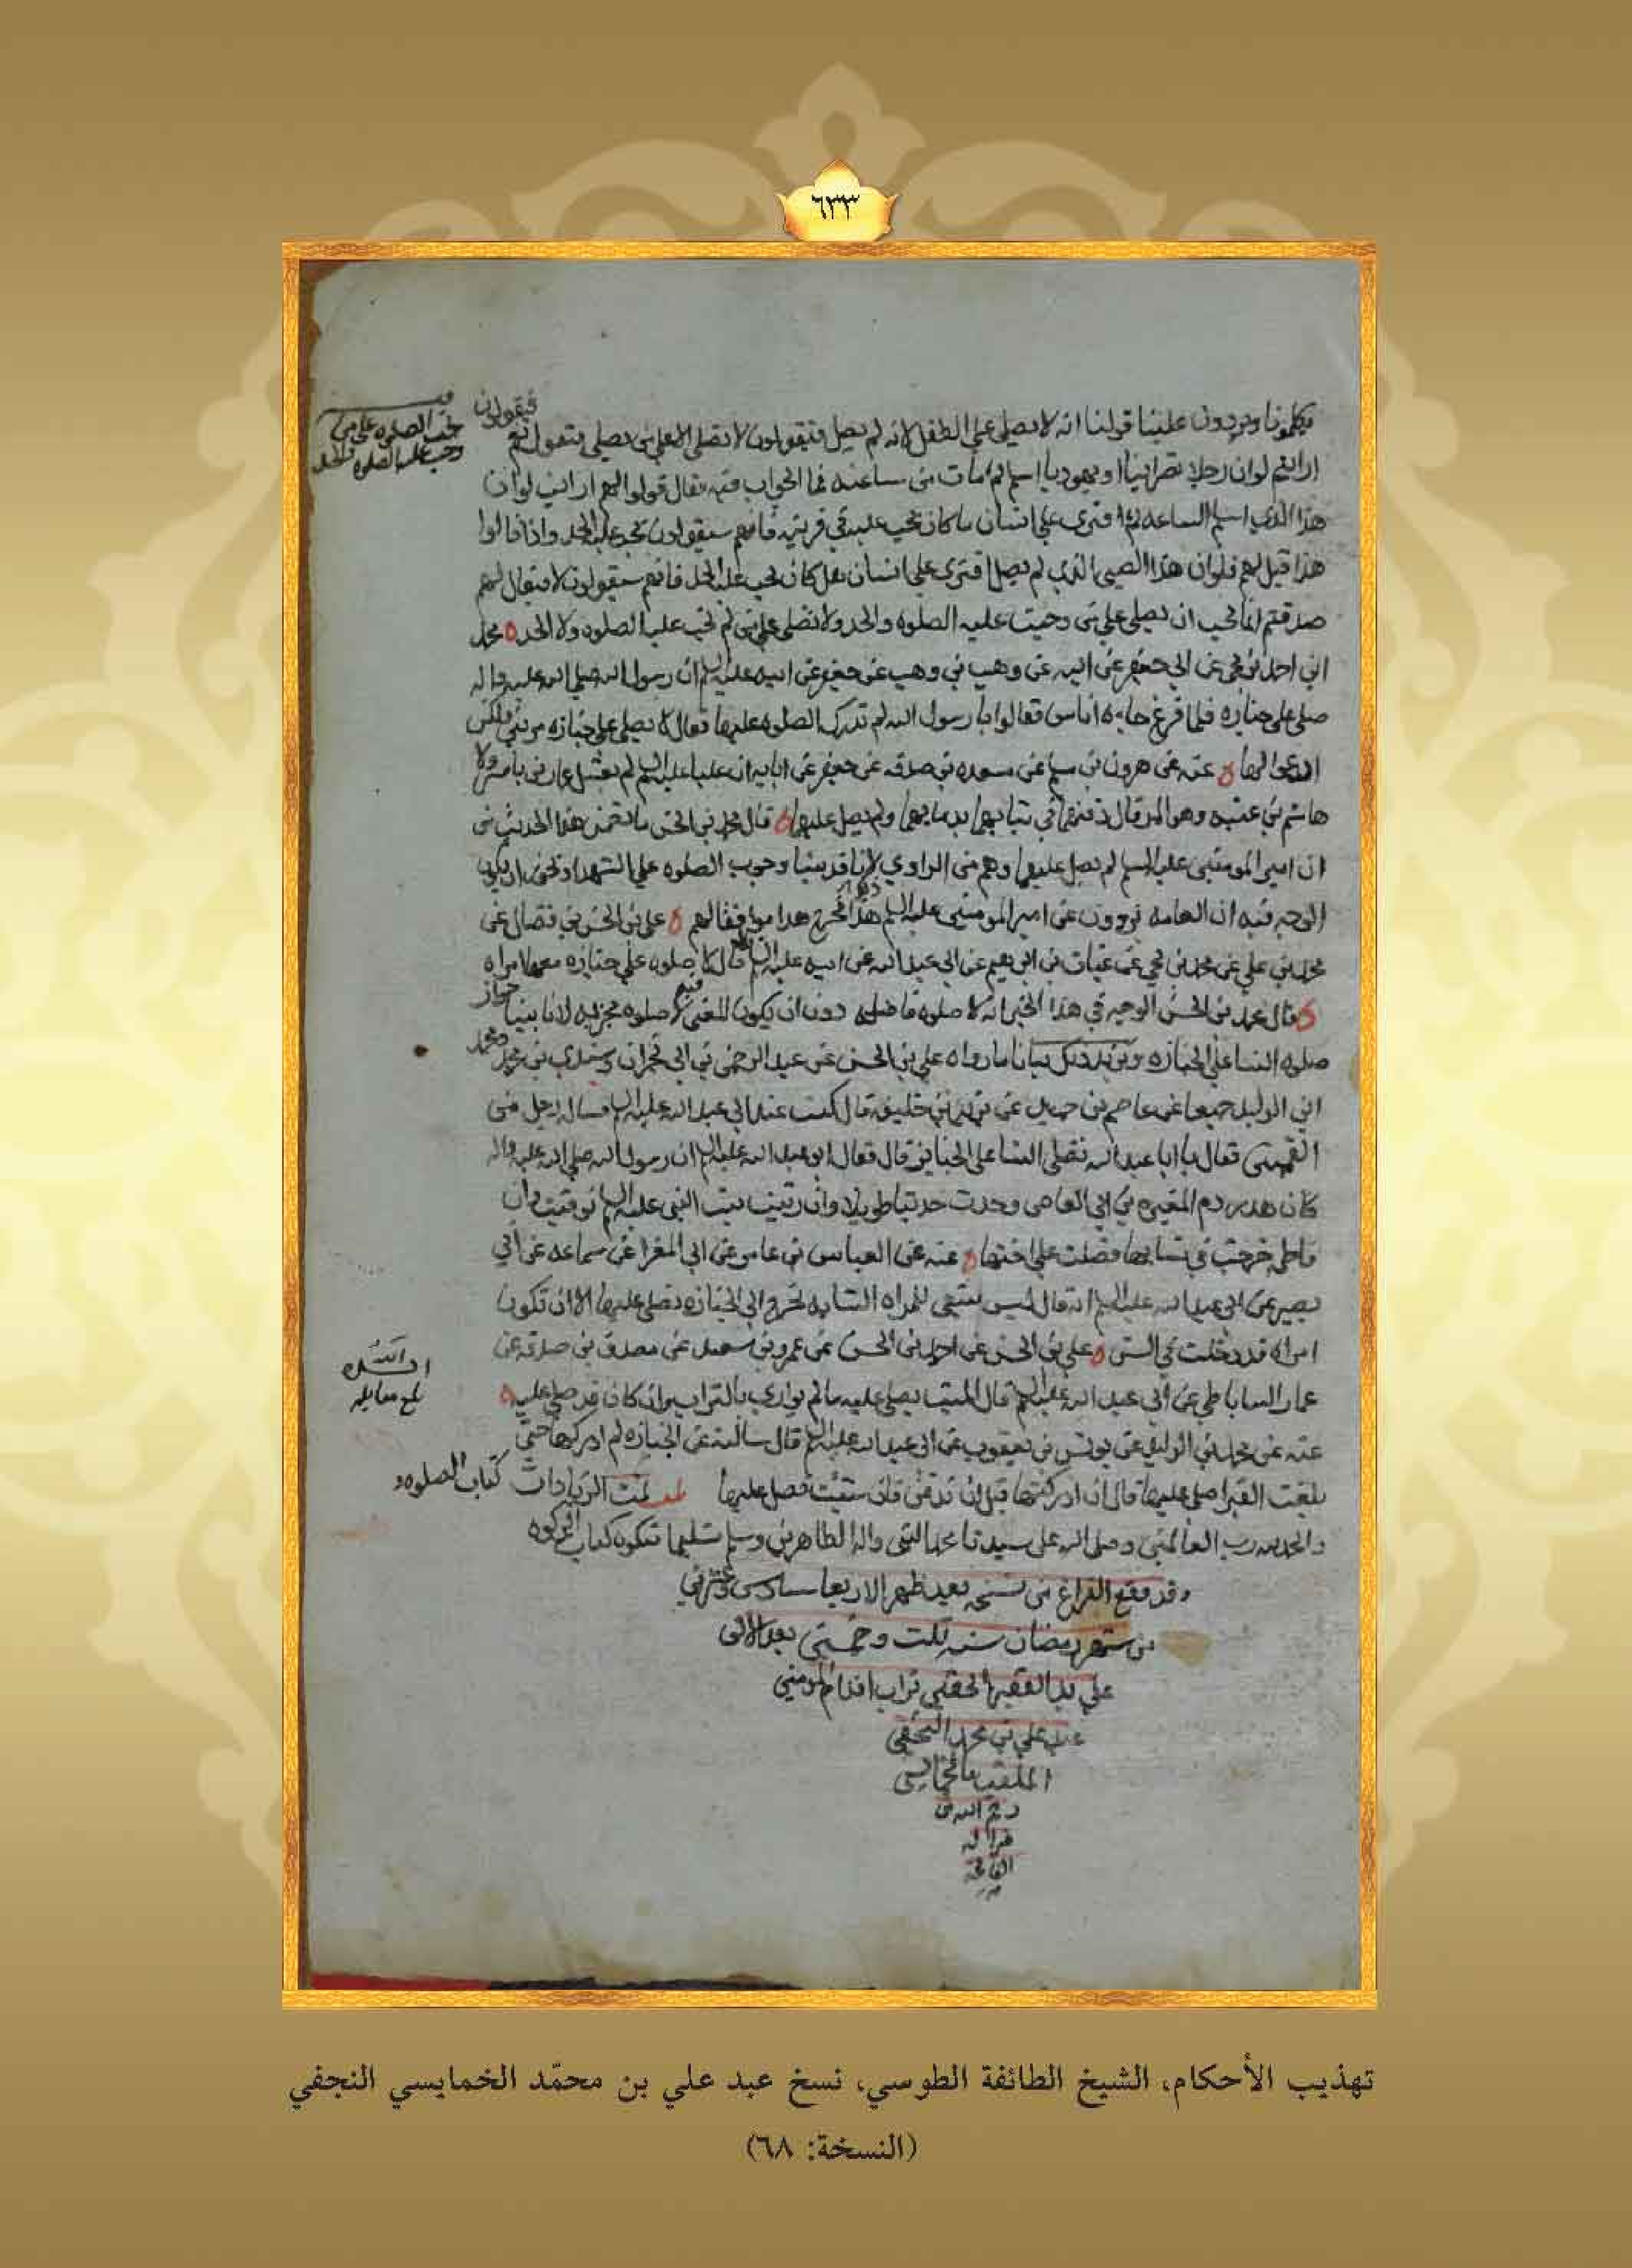 ٦٣٣
فيكلمونا ويردون علينا قولنا انه لا يصلى على الطفل لانه لم يصل فيقولون لا يصلى الا على من يصلى فنقول نعم فيقولون
ارايتم لو ان رجلا نصرانيا او يهوديا اسلم ثم مات من ساعته فما الجواب فيه فقال قولوا لهم ارايت لو ان
هذا الذي اسلم الساعه ثم افترى على انسان ما كان يجب عليه في فريته فانهم سيقولون يجب عليه الحد واذا قالوا
هذا قيل لهم فلو ان هذا الصبي الذي لم يصل افترى على انسان هل كان يجب عليه الحد فانهم سيقولون لا فيقال لهم
صدقتم انما يجب ان يصلى على من وجبت عليه الصلوه والحد ولا يصلى على من لم تجب عليه الصلوه ولا الحد محمد
ابن احمد بن يحيى عن ابي جعفر عن ابيه عن وهب بن وهب عن جعفر عن ابيه عليه السلم ان رسول الله صلى الله عليه واله
صلى على جنازه فلما فرغ جاءه اناس فقالوا يا رسول الله لم ندرك الصلوه عليها فقال لا يصلى على جنازه مرتين ولكن
ادعوا لها عنه عن هرون بن مسلم عن مسعده بن صدقه عن جعفر عن ابايه ان عليا عليه السلم لم يغسل عمار بن ياسر ولا
هاشم بن عتبه وهو المرقال دفنهما في ثيابهما بدمائهما ولم يصل عليهما قال محمد بن الحسن ما تضمن هذا الحديث من
ان امير المومنين عليه السلم لم يصل عليهما وهم من الراوي لانا قد بينا وجوب الصلوه على الشهدا ويجوز ان يكون
الوجه فيه ان العامه يروون عن امير المومنين عليه السلم هذا فخرج هذا موافقا لهم علي بن الحسن بن فضال عن
محمد بن علي عن محمد بن يحيى عن غياث بن ابرهيم عن ابي عبد الله عن ابيه عليه السلم قال لا صلوه على جنازه معها امراه
قال محمد بن الحسن الوجه في هذا الخبر انه لا صلوه فاضله دون ان يكون المعنى فيه لا صلوه مجزيه لانا بينا جواز
صلوه النسا على الجنازه ويزيد ذلك بيانا ما رواه علي بن الحسن عن عبد الرحمن بن ابي نجران وسندي بن محمد ومحمد
ابن الوليد جميعا عن عاصم بن حميد عن يزيد بن خليفه قال كنت عند ابي عبد الله عليه السلم فساله رجل من
القميين فقال يا ابا عبد الله تصلي النسا على الجنايز قال فقال ابو عبد الله عليه السلم ان رسول الله صلى الله عليه واله
كان هدر دم المغيره بن ابي العاص وحدث حديثا طويلا وان زينب بنت النبي عليه السلم توفيت وان
فاطمه خرجت في نسائها فصلت على اختها عنه عن العباس بن عامر عن ابي المغرا عن سماعه عن ابي
بصير عن ابي عبد الله عليه السلم انه قال ليس ينبغي للمراه الشابه تخرج الى الجنازه تصلي عليها الا ان تكون
امراه قد دخلت في السن علي بن الحسن عن احمد بن الحسن عن عمرو بن سعيد عن مصدق بن صدقه عن
عمار الساباطي عن ابي عبد الله عليه السلم قال الميت يصلى عليه ما لم يوارى بالتراب وان كان قد صلى عليه
عنه عن محمد بن الوليد عن يونس بن يعقوب عن ابي عبد الله عليه السلم قال سالته عن الجنازه لم ادركها حتى
بلغت القبر اصلي عليها قال ان ادركتها قبل ان تدفن فان شيت فصل عليها تمت الزيادات كتاب الصلوه و
والحمد لله رب العالمين وصلى الله على سيدنا محمد النبي واله الطاهرين وسلم تسليما يتلوه كتاب الزكوه
وقد وقع الفراغ من نسخه بعد ظهر الاربعا سادس وعشرين
من شهر رمضان سنه ثلث وخمسين بعد الالف
على يد الفقير الحقير تراب اقدام المومنين
عبد علي بن محمد النجفي
الملقب بالخمايسي
رحم الله من
قرا له
الفاتحه
تهذيب الأحكام، الشيخ الطائفة الطوسي، نسخ عبد علي بن محمّد الخمايسي النجفي
(النسخة: ٦٨)